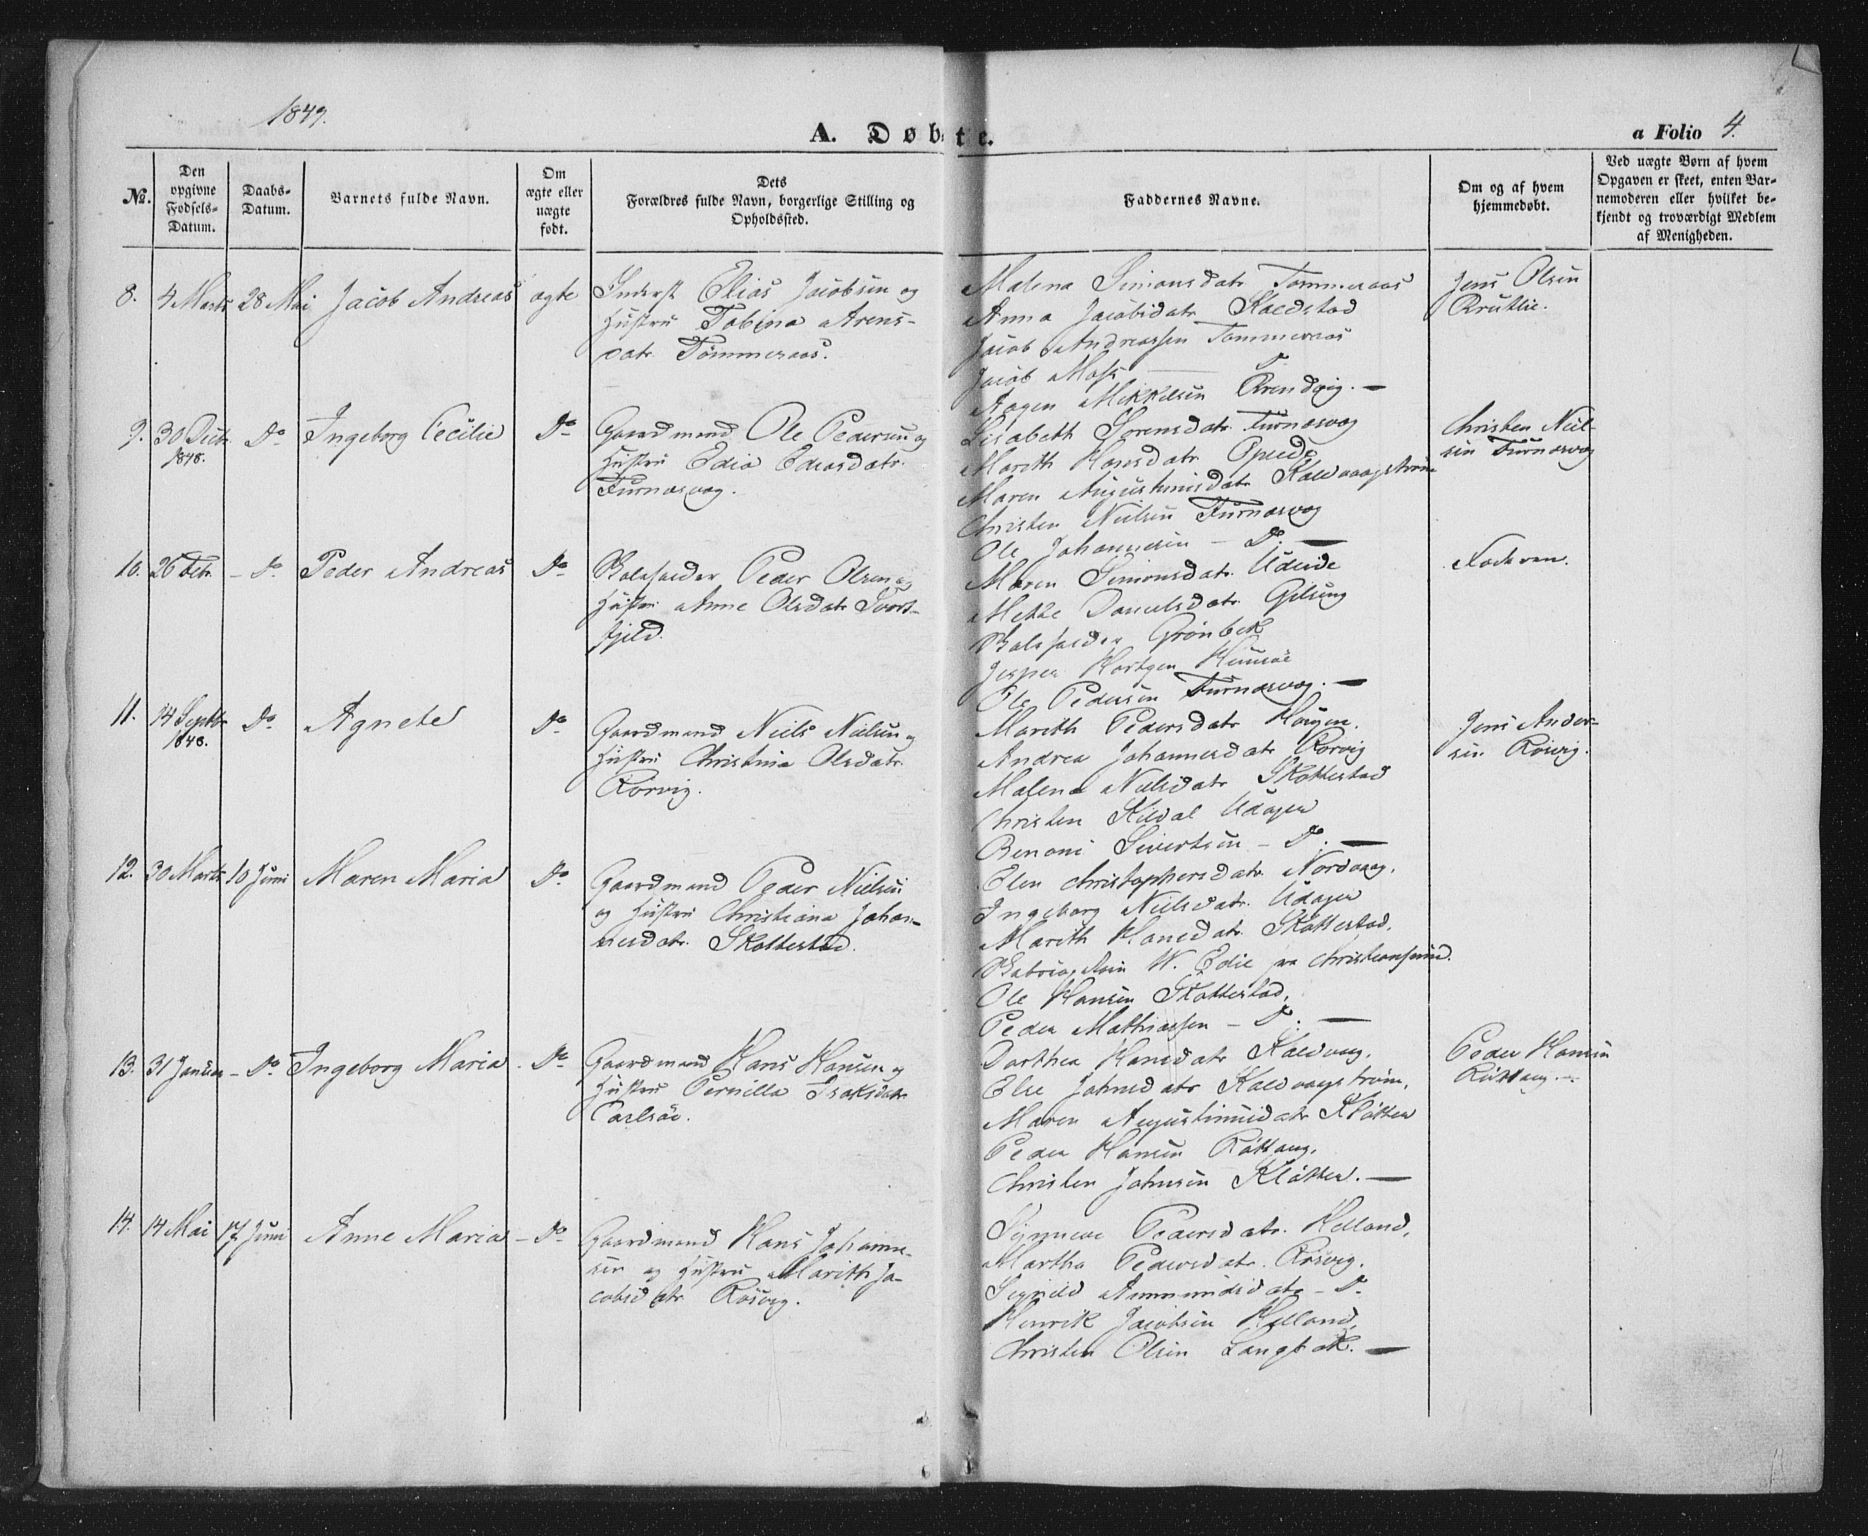 1849.
A. Døbte.
a Folio 4.
No.
Den opgivne Fødsels-Datum.
Daabs-Datum.
Barnets fulde Navn.
Om ægte eller uægte født.
Dets Forældres fulde Navn, borgerlige Stilling og Opholdssted.
Faddernes Navne.
Om og af hvem hjemmedøbt.
Ved uægte Børn af hvem Opgaven er skeet, enten Barnemoderen eller hvilket bekjendt og troværdigt Medlem af Menigheden.
8. 4 Marts 28 Mai Jacob Andreas ægte
Inderst Elias Jacobsen og
Hustru Tobina Arens-
datr Tømmeraas.
Malena Simonsdatr Tømmeraas
Anna Jacobsdatr
Jacob Andreassen Tømmeraas
Jacob Moss
Aagen Mikkelsen
Jens Olsen
9. 30 Decbr 1848. Do Ingeborg Cecilie Do
Gaardmand Ole Pedersen og
Hustru Edia Ediasdatr
Furnæsvog.
Lisabeth Sørensdatr Furnæsvog
Marith Hansdatr
Maren Augustinusdatr
Christen Nielsen Furnæsvog
Ole Johannesen – Do. —
Christen Niel-
sen Furnæsvog
10. 26 Febr. – Do. Peder Andreas Do
Peder Olsen og
Hustru Anne Olsdatr Svort-
fjeld.
Maren Simonsdatr.
Mette Danielsdatr.
Grønbek
Jesper
Ole Pedersen Furnæsvog. —
Faderen.
11. 14 Septbr 1848. Do. Agnete Do
Gaardmand Niels Nielsen og
Hustru Christina Olsdatr
Rørvig.
Marith Pedersdatr Haugen.
Andrea Johannesdatr Rørvig
Malena Nielsdatr Skottestad
Christen
Benoni Sivertsen – Do. —
Jens Ander-
sen Rørvig.
12. 30 Marts 10 Juni Maren Maria Do
Gaardmand Peder Nielsen
og Hustru Christiana Johan-
nesdatr. Skottestad.
Elen Christophersdatr Nordvaag.
Ingeborg Nielsdatr.
Marith Hansdatr Skottestad.
W. Edie fra Christiansund.
Ole Hansen Skottestad.
Peder Mathiassen – Do. —
13. 31 Januar – Do Ingeborg Maria. Do
Gaardmand Hans Hansen og
Hustru Pernilla Isaksdatr
Carlsøe.
Dorthea Hansdatr
Else Johnsdatr
Maren Augustinusdatr
Peder Hansen
Christen Johnsen —
Peder Hansen
14. 14 Mai 17 Juni Anne Maria – Do
Gaardmand Hans Johanne-
sen og Hustru Marith Ja-
cobsdatr Røsvig.
Synneve Pedersdatr. Helland,
Martha Pedersdatr. Røsvig.
Sigrid Ammundsdatr – Do
Henrik Jacobsen Helland,
Christen Olsen Langbak. —